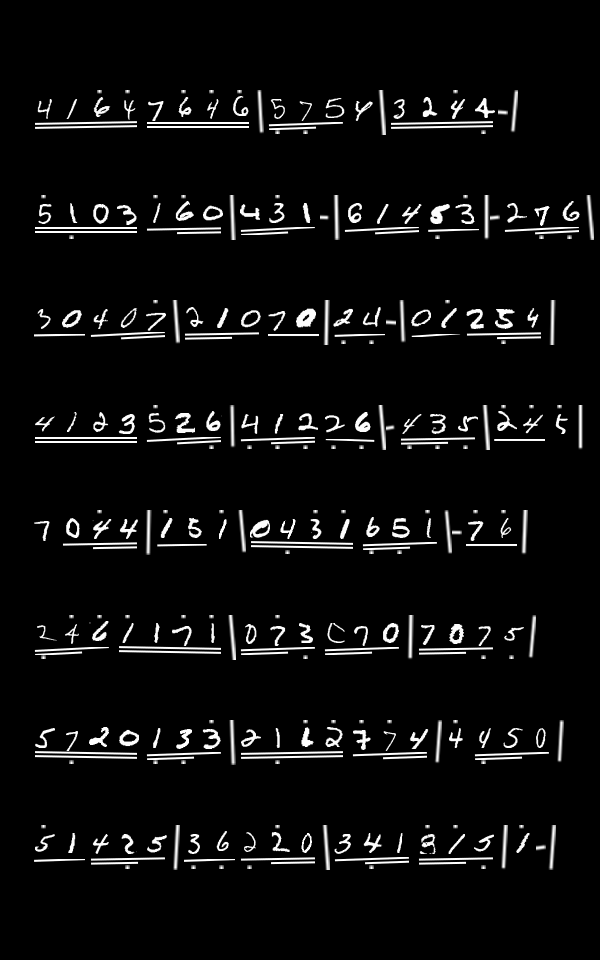 4 1 6 4 7 6 4 6 | 5 7 5 4 | 3 2 4 4 - |
5 1 0 3 1 6 0 | 4 3 1 - | 6 1 4 5 3 | - 2 7 6 |
3 0 4 0 7 | 2 1 0 7 0 | 2 4 - | 0 1 2 5 4 |
4 1 2 3 5 2 6 | 4 1 2 2 6 | - 4 3 5 | 2 4 5 |
7 0 4 4 | 1 5 1 | 0 4 3 1 6 5 1 | - 7 6 |
2 4 6 1 1 7 1 | 0 7 3 0 7 0 | 7 0 7 5 |
5 7 2 0 1 3 3 | 2 1 6 2 7 7 4 | 4 4 5 0 |
5 1 4 2 5 | 3 6 2 2 0 | 3 4 1 3 1 5 | 1 - |